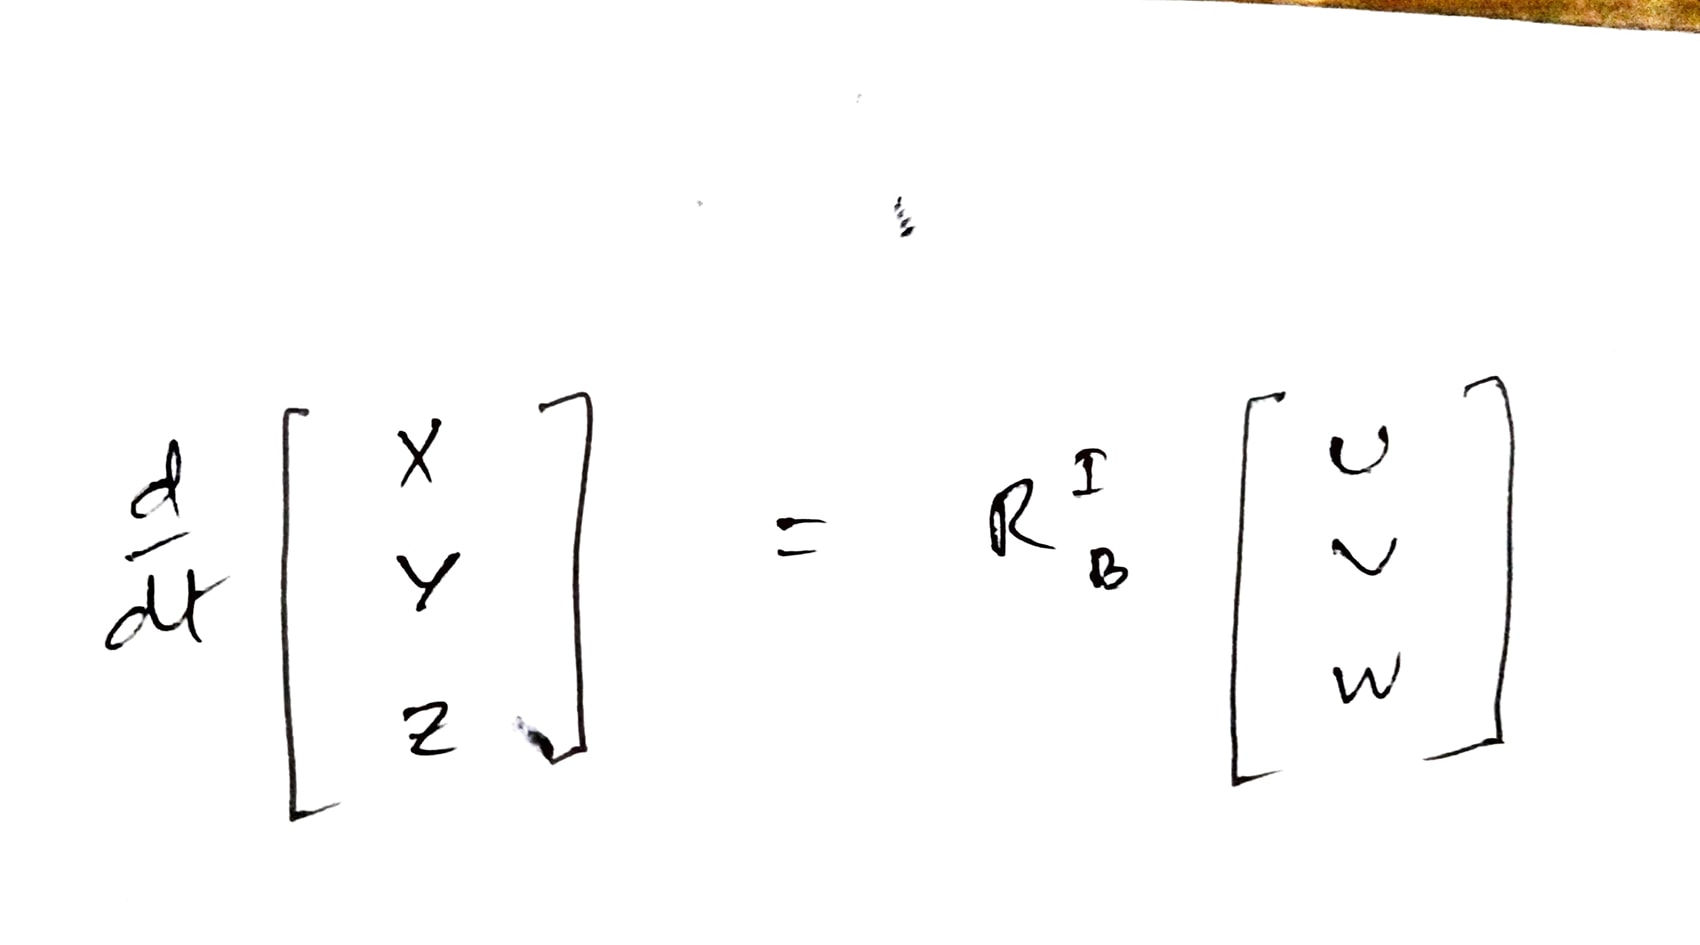 d/dt [ X Y Z ] = R^I_B [ U V W ]